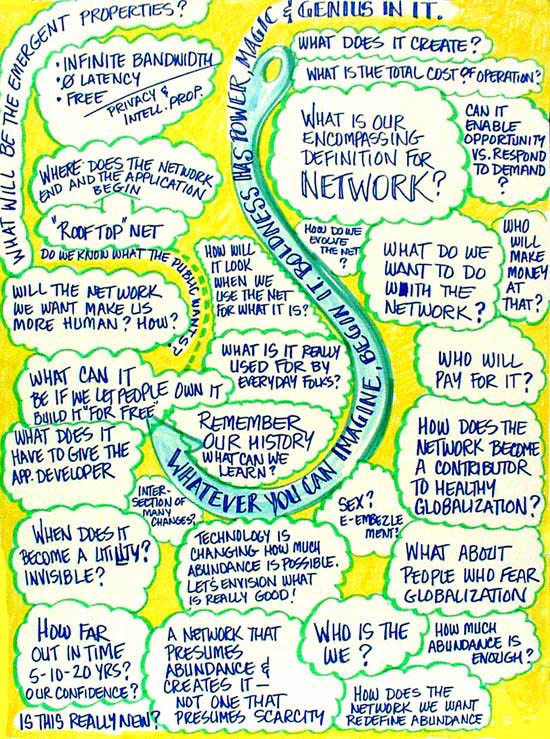 WHAT WILL BE THE EMERGENT PROPERTIES?
• INFINITE BANDWIDTH
• Ø LATENCY
• FREE
PRIVACY &
INTELL. PROP.
WHERE DOES THE NETWORK
END AND THE APPLICATION
BEGIN
"ROOFTOP" NET
DO WE KNOW WHAT THE PUBLIC WANTS?
WILL THE NETWORK
WE WANT MAKE US
MORE HUMAN? HOW?
WHAT CAN IT
BE IF WE LET PEOPLE OWN IT
BUILD IT "FOR FREE"
WHAT DOES IT
HAVE TO GIVE THE
APP. DEVELOPER
WHATEVER YOU CAN IMAGINE, BEGIN IT BOLDNESS HAS POWER, MAGIC & GENIUS IN IT.
WHAT DOES IT CREATE?
WHAT IS THE TOTAL COST OF OPERATION?
WHAT IS OUR
ENCOMPASSING
DEFINITION FOR
NETWORK?
CAN IT
ENABLE
OPPORTUNITY
VS. RESPOND
TO DEMAND
?
HOW DO WE
EVOLVE
THE NET
?
WHAT DO WE
WANT TO DO
WITH THE
NETWORK?
WHO
WILL
MAKE
MONEY
AT
THAT?
HOW WILL
IT LOOK
WHEN WE
USE THE NET
FOR WHAT IT IS?
WHAT IS IT REALLY
USED FOR BY
EVERYDAY FOLKS?
WHO WILL
PAY FOR IT?
REMEMBER
OUR HISTORY
WHAT CAN WE
LEARN?
HOW DOES THE
NETWORK BECOME
A CONTRIBUTOR
TO HEALTHY
GLOBALIZATION?
INTER-
SECTION OF
MANY
CHANGES?
SEX?
E-EMBEZLE
MENT?
WHEN DOES IT
BECOME A UTILITY?
INVISIBLE?
TECHNOLOGY IS
CHANGING HOW MUCH
ABUNDANCE IS POSSIBLE.
LET'S ENVISION WHAT
IS REALLY GOOD!
WHAT ABOUT
PEOPLE WHO FEAR
GLOBALIZATION
HOW FAR
OUT IN TIME
5-10-20 YRS?
OUR CONFIDENCE?
IS THIS REALLY NEW?
A NETWORK THAT
PRESUMES
ABUNDANCE &
CREATES IT —
NOT ONE THAT
PRESUMES SCARCITY
WHO IS THE
WE?
HOW MUCH
ABUNDANCE IS
ENOUGH?
HOW DOES THE
NETWORK WE WANT
REDEFINE ABUNDANCE